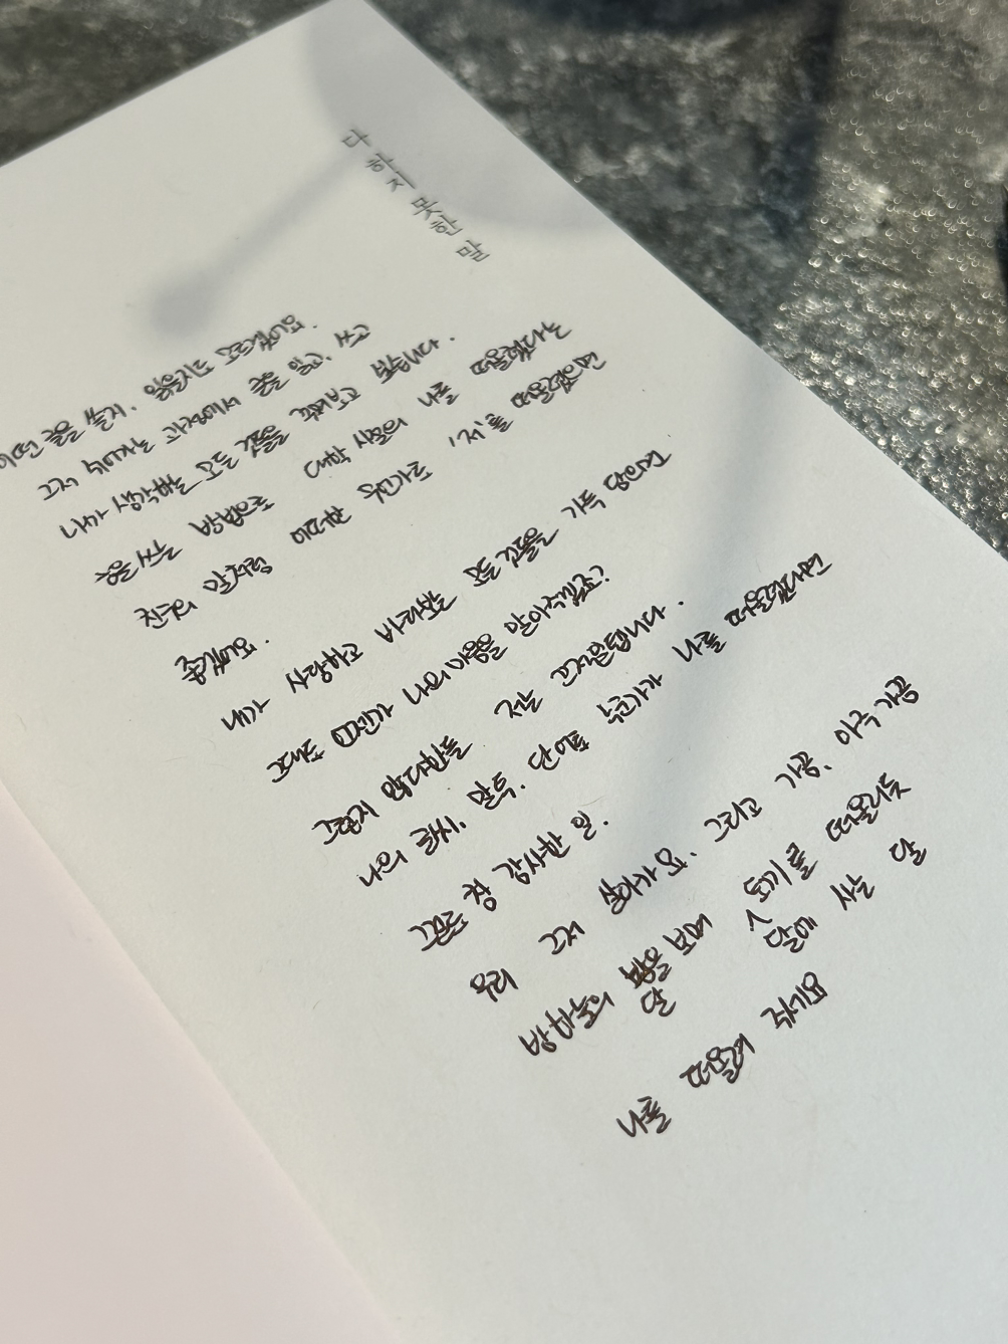 다하지못한말
어떤 글을 쓸지, 읽을지도 모르겠어요.
그저 넘기는 과정에서 글을 읽고, 쓰고
내가 생각했던 모든 것들을 해보고 싶습니다.
글을 쓰는 방식으로 대학 시절의 나를 떠올렸다는
친구의 말처럼 '저'를 떠올렸으면
좋겠어요.
내가 사랑하고 바라봤던 모든 것들을 가득 담으면
그대로 당신이 나의 마음을 알아주겠죠?
그렇지 않더라도 저는 그저
나의 글씨, 말투, 단어로 누군가가 나를 떠올렸다면
그걸로 참 감사한 일.
우리 그저 살아가요. 그리고 가끔, 아주 가끔
밤하늘의 달을 보며 달에 사는 토끼를 떠올리듯
나를 떠올려 주세요